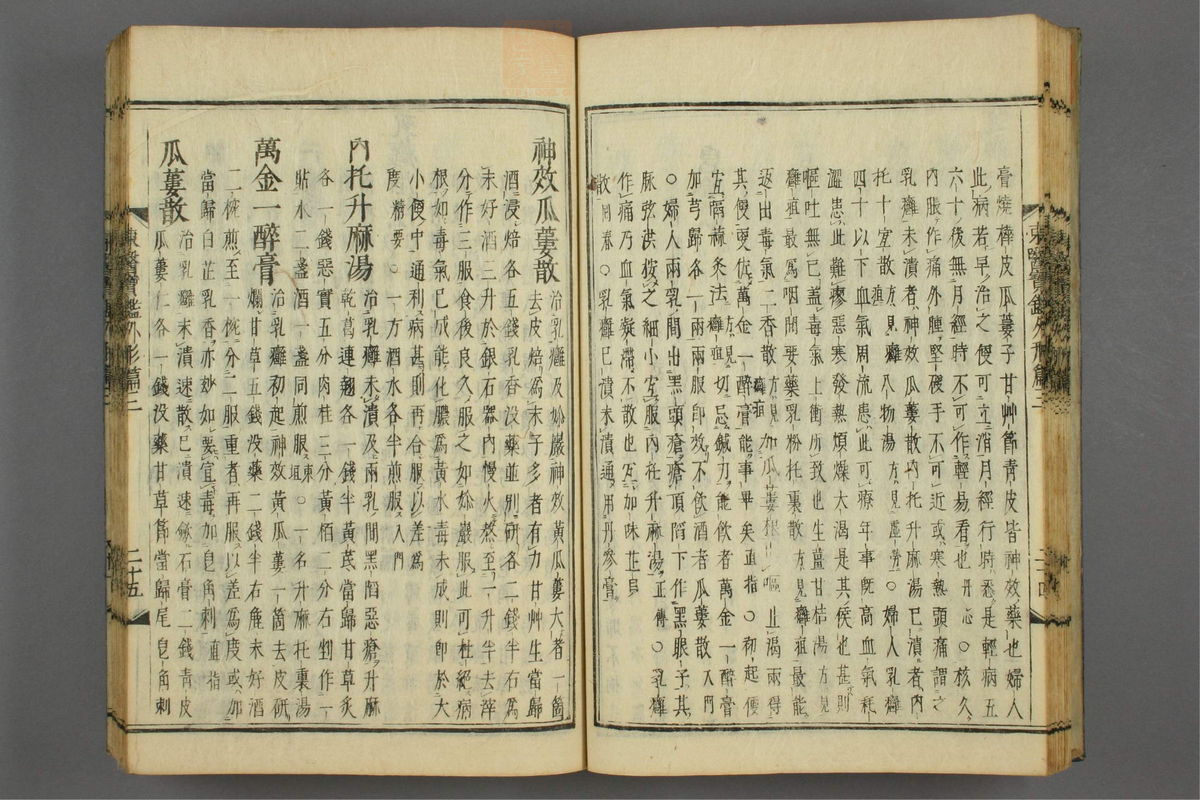 膏燒樺皮瓜蔞子甘艸節青皮皆神效藥也婦人
此病若早治之便可立消月經行時悉是輕病五
六十後無月經時不可作輕易看也丹心○核久
內脹作痛外腫堅硬手不可近或寒熱頭痛謂之
乳癰未潰者神效瓜蔞散內托升麻湯已潰者內
托十宣散方見癰疽八物湯方見虛勞○婦人乳癰
四十以下下血氣周流患此可療年事旣高血氣耗
澀患此難瘳惡寒發熱煩燥大渴是其候也甚則
嘔吐無已蓋毒氣上衝所致也生薑甘桔湯方見
癰疽最爲咽間要藥乳粉托裏散方見癰疽最能
返出毒氣二香散方見癰疽加瓜蔞根止嘔止渴兩得
其便更佐萬金一醉膏能事畢矣直指○初起便
宜隔蒜灸法方見癰疽切忌鍼刀能飲者萬金一醉膏
加芎歸各一兩服卽效不飲酒者瓜蔞散入門
○婦人兩乳間出黑頭瘡瘡頂陷下作黑眼子其
脉弦洪按之細小宜服內托升麻湯正傳○乳癰
作痛乃血氣凝滯不散也宜加味芷貝
散回春○乳癰已潰未潰通用丹參膏
東醫寶鑑外形篇三
神效瓜蔞散治乳癰及妳巖神效黃瓜蔞大者一箇
去皮焙爲末子多者有力甘艸生當歸
酒浸焙各五錢乳香沒藥並別研各二錢半右爲
末好酒三升於銀石器內慢火熬至一升半去滓
分作三服食後良久服之如妳巖服此可杜絕病
根如毒氣已成能化膿爲黃水毒未成則卽於大
小便中通利病甚則再合服以差爲
度精要○一方酒水各半煎服入門
內托升麻湯治乳癰未潰及兩乳間黑陷惡瘡升麻
乾葛連翹各一錢半黃芪當歸甘草炙
各一錢惡實五分肉桂三分黃栢二分右剉作一
貼水二盞酒一盞同煎服東垣○一名升麻托裏湯
萬金一醉膏治乳癰初起神效黃瓜蔞一箇去皮研
爛甘草五錢沒藥二錢半右麁末好酒
二椀煎至一椀分二服重者再服以差爲度或加
當歸白芷乳香亦妙如要宣毒加皂角刺直指
瓜蔞散治乳癰未潰速散已潰速斂石膏二錢青皮
瓜蔞仁各一錢沒藥甘草節當歸尾皂角刺
東醫寶鑑外形篇三
二十五